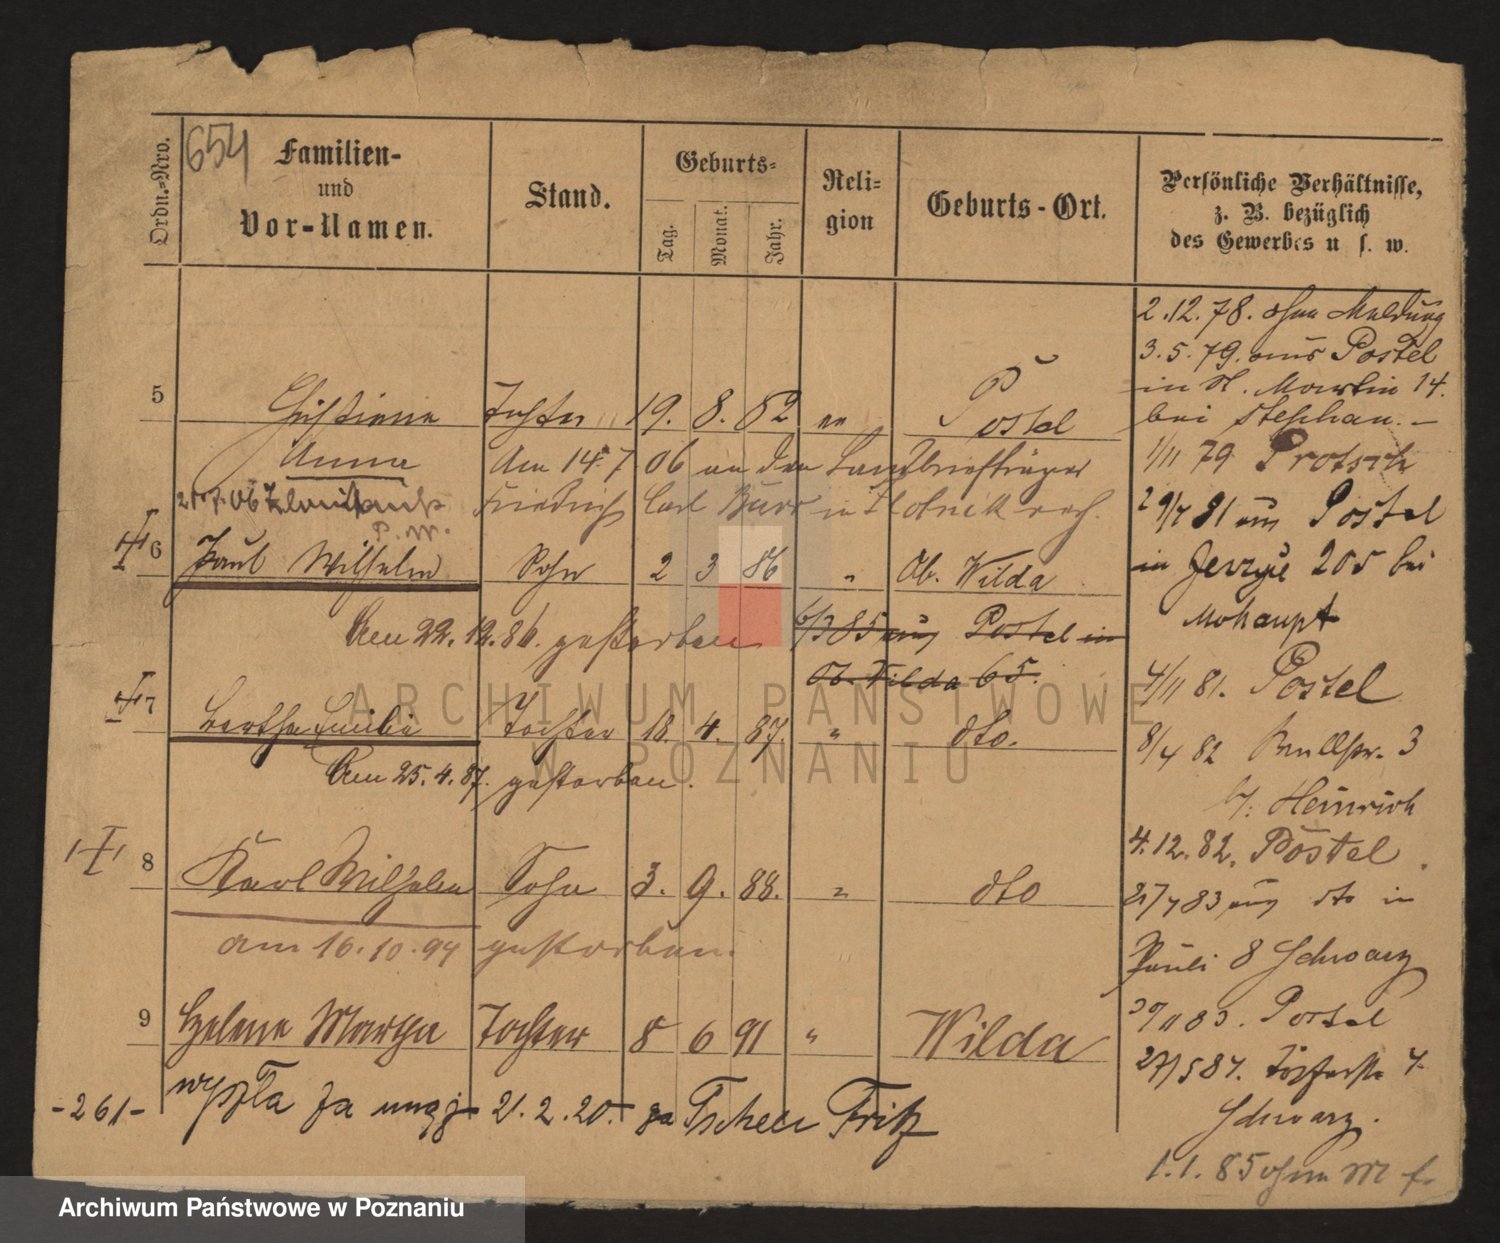 654
Ordn.-Nro.
Familien-
und
Vor-Namen.
Stand.
Geburts-
Tag.
Monat.
Jahr.
Reli-
gion
Geburts-Ort.
Persönliche Verhältnisse,
z. B. bezüglich
des Gewerbes u. s. w.
2.12.78. ohne Meldung
3.5.79. aus Postel
in St. Martin 14.
bei Stephan. –
5 Christiane Tochter 19. 8. 62 ev Postel
Anna Am 14. 7 06 an den Landbriefträger
Friedrich Carl in Zlotnik
P. M.
1/11 79 Protsch
29/4 81 aus Postel
in Jerzyce 205 bei
Mohaupt
6 Paul Wilhelm Sohn 2 3 86 " Ob. Wilda
Am 22.12.86. gestorben
6/3 85 aus Postel in
Ob. Wilda 65.
4/11 81. Postel
7 Bertha Emilie Tochter 18. 4. 87. " dto.
Am 25.4.87. gestorben.
8/4 82 3
b/: Heinrich
4.12.82. Postel.
8 Karl Wilhelm Sohn 3. 9. 88. " dto
am 16.10.94 gestorben.
27/4 83 aus dto in
Pauli 8 Schwarz
30/11 83. Postel
9 Helene Martha Tochter 8 6 91 " Wilda
27/5 84. 4.
Schwarz.
-261- wyszła za mąż 21.2.20. za Tscheu Fritz
1.1.85 ohne M
ARCHIWUM PAŃSTWOWE
W POZNANIU
Archiwum Państwowe w Poznaniu